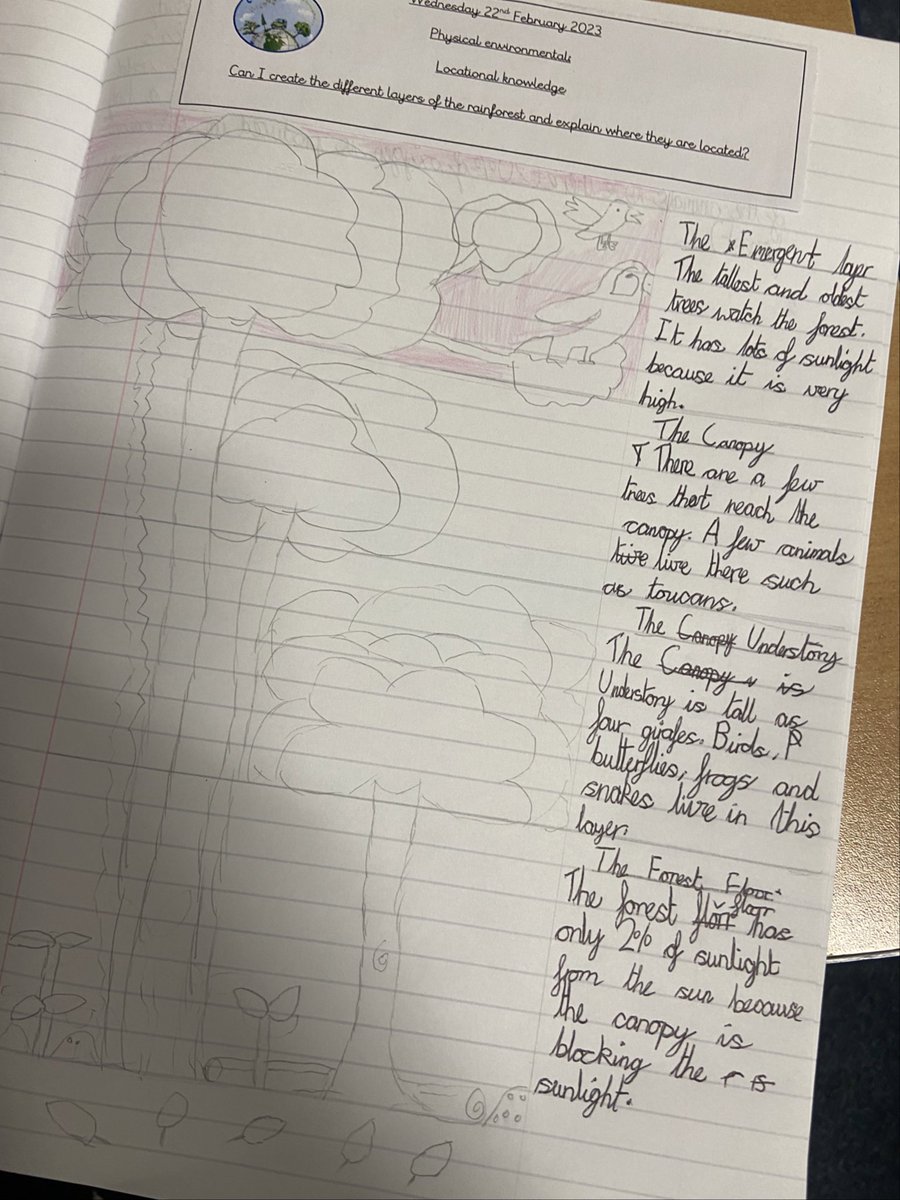 Wednesday 22nd February 2023
Physical environmentals
Locational knowledge
Can I create the different layers of the rainforest and explain where they are located?
The Emergent layr
The tallest and oldest
trees watch the forest.
It has lots of sunlight
because it is very
high.
The Canopy
There are a few
trees that reach the
canopy. A few animals
live live there such
as toucans.
The Canopy Understory
The Canopy is
Understory is tall as
four girafes. Birds,
butterflies, frogs and
snakes live in this
layer.
The Forest Floor.
floor
The forest has
only 2% of sunlight
from the sun because
the canopy is
blocking the
sunlight.